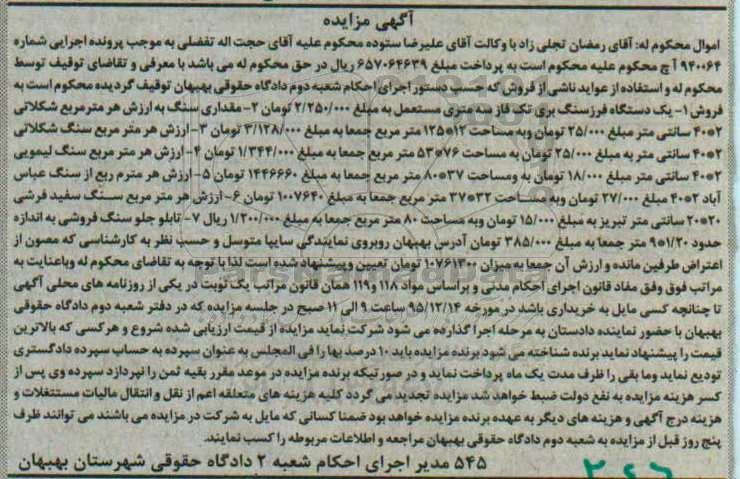 آگهی مزایده
اموال محکوم له: آقای رمضان تجلی زاد با وکالت آقای علیرضا ستوده محکوم علیه آقای حجت اله تفضلی به موجب پرونده اجرایی شماره
۹۴۰۰۶۴ آ ح محکوم علیه محکوم است به پرداخت مبلغ ۶۵۷۰۶۴۶۳۹ ریال در حق محکوم له می باشد با معرفی و تقاضای توقیف توسط
محکوم له و استفاده از عواید ناشی از فروش که حسب دستور اجرای احکام شعبه دوم دادگاه حقوقی بهبهان توقیف گردیده محکوم است به
فروش ۱- یک دستگاه فرز سنگ بری تک فاز سه متری مستعمل به مبلغ ۲/۲۵۰/۰۰۰ تومان ۲- مقداری سنگ به ارزش هر مترمربع شکلاتی
۲*۴۰ سانتی متر مبلغ ۲۵/۰۰۰ تومان وبه مساحت ۱۲*۱۲۵ متر مربع جمعا به مبلغ ۳/۱۲۸/۰۰۰ تومان ۳- ارزش هر متر مربع سنگ شکلاتی
۲*۴۰ سانتی متر به مبلغ ۲۵/۰۰۰ تومان به مساحت ۷۶*۵۳ متر مربع جمعا به مبلغ ۱/۳۴۴/۰۰۰ تومان ۴- ارزش هر متر مربع سنگ لیمویی
۲*۴۰ سانتی متر مبلغ ۱۸/۰۰۰ تومان به ومساحت ۳۷*۸۰ متر مربع جمعا به مبلغ ۱۴۴۶۶۶۰ تومان ۵- ارزش هر مترم ربع از سنگ عباس
آباد ۲*۴۰ مبلغ ۲۷/۰۰۰ تومان وبه مساحت ۳۲*۳۷ متر مربع جمعا به مبلغ ۱۰۰۷۶۴۰ تومان ۶- ارزش هر متر مربع سنگ سفید فرشی
۲۰*۲۰ سانتی متر تبریز به مبلغ ۱۵/۰۰۰ تومان وبه مساحت ۸۰ متر مربع جمعا به مبلغ ۱/۲۰۰/۰۰۰ ریال ۷- تابلو جلو سنگ فروشی به اندازه
حدود ۱/۲۰*۹ متر جمعا به مبلغ ۳۸۵/۰۰۰ تومان آدرس بهبهان روبروی نمایندگی سایپا متوسل و حسب نظر به کارشناسی که مصون از
اعتراض طرفین مانده و ارزش آن جمعا به میزان ۱۰۷۶۱۳۰۰ تومان تعیین و پیشنهاد شده است لذا با توجه به تقاضای محکوم له وباعنایت به
مراتب فوق وفق مفاد قانون اجرای احکام مدنی و براساس مواد ۱۱۸ و ۱۱۹ همان قانون مراتب یک نوبت در یکی از روزنامه های محلی آگهی
تا چنانچه کسی مایل به خریداری باشد در مورخه ۹۵/۱۲/۱۴ ساعت ۹ الی ۱۱ صبح در جلسه مزایده که در دفتر شعبه دوم دادگاه حقوقی
بهبهان با حضور نماینده دادستان به مرحله اجرا گذارده می شود شرکت نماید مزایده از قیمت ارزیابی شده شروع و هرکسی که بالاترین
قیمت را پیشنهاد نماید برنده شناخته می شود برنده مزایده باید ۱۰ درصد بها را فی المجلس به عنوان سپرده به حساب سپرده دادگستری
تودیع نماید وما بقی را ظرف مدت یک ماه پرداخت نماید و در صورتیکه برنده مزایده در موعد مقرر بقیه ثمن را نپردازد سپرده وی پس از
کسر هزینه مزایده به نفع دولت ضبط خواهد شد مزایده تجدید می گردد کلیه هزینه های متعلقه اعم از نقل و انتقال مالیات مستغلات و
هزینه درج آگهی و هزینه های دیگر به عهده برنده مزایده خواهد بود ضمنا کسانی که مایل به شرکت در مزایده می باشند می توانند ظرف
پنج روز قبل از مزایده به شعبه دوم دادگاه حقوقی بهبهان مراجعه و اطلاعات مربوطه را کسب نمایند.
۵۴۵ مدیر اجرای احکام شعبه ۲ دادگاه حقوقی شهرستان بهبهان